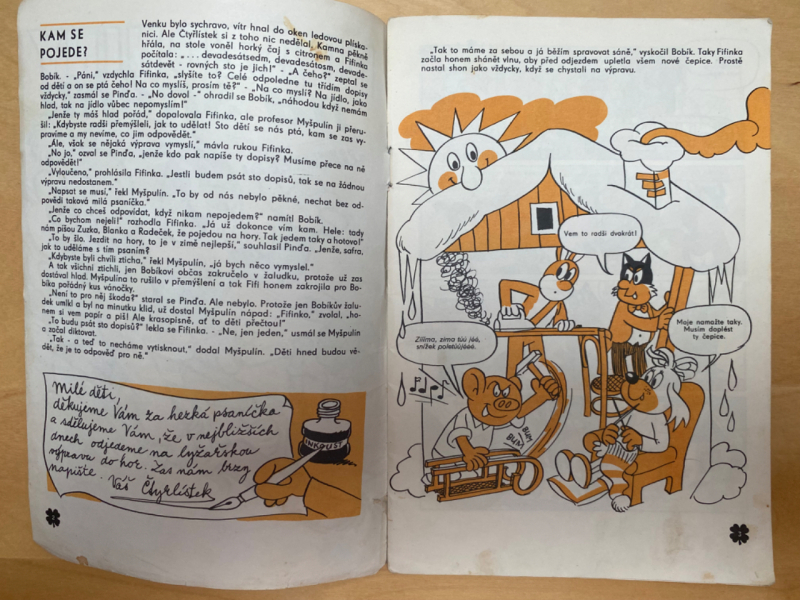 KAM SE
POJEDE?
Venku bylo sychravo, vítr hnal do oken ledovou plíska-
nici. Ale Čtyřlístek si z toho nic nedělal. Kamna pěkně
hřála, na stole voněl horký čaj s citronem a Fifinka
počítala: „ ... devadesátsedm, devadesátosm, devade-
sátdevět - rovných sto je jich!“ - „A čeho?“ zeptal se
Bobík. - „Páni,“ vzdychla Fifinka, „slyšíte to? Celé odpoledne tu třídím dopisy
od dětí a on se ptá čeho! Na co myslíš, prosím tě?“ - „Na co myslí? Na jídlo, jako
vždycky,“ zasmál se Pinďa. - „No dovol -“ ohradil se Bobík, „náhodou když nemám
hlad, tak na jídlo vůbec nepomyslím!“
„Jenže ty máš hlad pořád,“ dopalovala Fifinka, ale profesor Myšpulín ji přeru-
šil: „Kdybyste radši přemýšleli, jak to udělat! Sto dětí se nás ptá, kam se zas vy-
pravíme a my nevíme, co jim odpovědět.“
„Ale, však se nějaká výprava vymyslí,“ mávla rukou Fifinka.
„No jo,“ ozval se Pinďa, „jenže kdo pak napíše ty dopisy? Musíme přece na ně
odpovědět!“
„Vyloučeno,“ prohlásila Fifinka. „Jestli budem psát sto dopisů, tak se na žádnou
výpravu nedostanem.“
„Napsat se musí,“ řekl Myšpulín. „To by od nás nebylo pěkné, nechat bez od-
povědi taková milá psaníčka.“
„Jenže co chceš odpovídat, když nikam nepojedem?“ namítl Bobík.
„Co bychom nejeli!“ rozhodla Fifinka. „Já už dokonce vím kam. Hele: tady
nám píšou Zuzka, Blanka a Radeček, že pojedou na hory. Tak jedem taky a hotovo!“
„To by šlo. Jezdit na hory, to je v zimě nejlepší,“ souhlasil Pinďa. „Jenže, safra,
jak to uděláme s tím psaním?“
„Kdybyste byli chvíli zticha,“ řekl Myšpulín, „já bych něco vymyslel.“
A tak všichni ztichli, jen Bobíkovi občas zakručelo v žaludku, protože už zas
dostával hlad. Myšpulína to rušilo v přemýšlení a tak Fifi honem zakrojila pro Bo-
bíka pořádný kus vánočky.
„Není to pro něj škoda?“ staral se Pinďa. Ale nebylo. Protože jen Bobíkův žalu-
dek umlkl a byl na minutku klid, už dostal Myšpulín nápad: „Fifinko,“ zvolal, „ho-
nem si vem papír a piš! Ale krasopisně, ať to děti přečtou!“
„To budu psát sto dopisů?“ lekla se Fifinka. - „Ne, jen jeden,“ usmál se Myšpulín
a začal diktovat.
„Tak - a teď to necháme vytisknout,“ dodal Myšpulín. „Děti hned budou vě-
dět, že je to odpověď pro ně.“
Milé děti,
děkujeme Vám za hezká psaníčka
a sdělujeme Vám, že v nejbližších
dnech odjedeme na lyžařskou
výpravu do hor. Zas nám brzy
napište. Váš Čtyřlístek
INKOUST
„Tak to máme za sebou a já běžím spravovat sáně,“ vyskočil Bobík. Taky Fifinka
začala honem shánět vlnu, aby před odjezdem upletla všem nové čepice. Prostě
nastal shon jako vždycky, když se chystali na výpravu.
Vem to radši dvakrát!
Moje namažte taky.
Musím doplést
ty čepice.
Zííííma, zima túú jéé,
snížek poletúújééé.
BUM
BUM